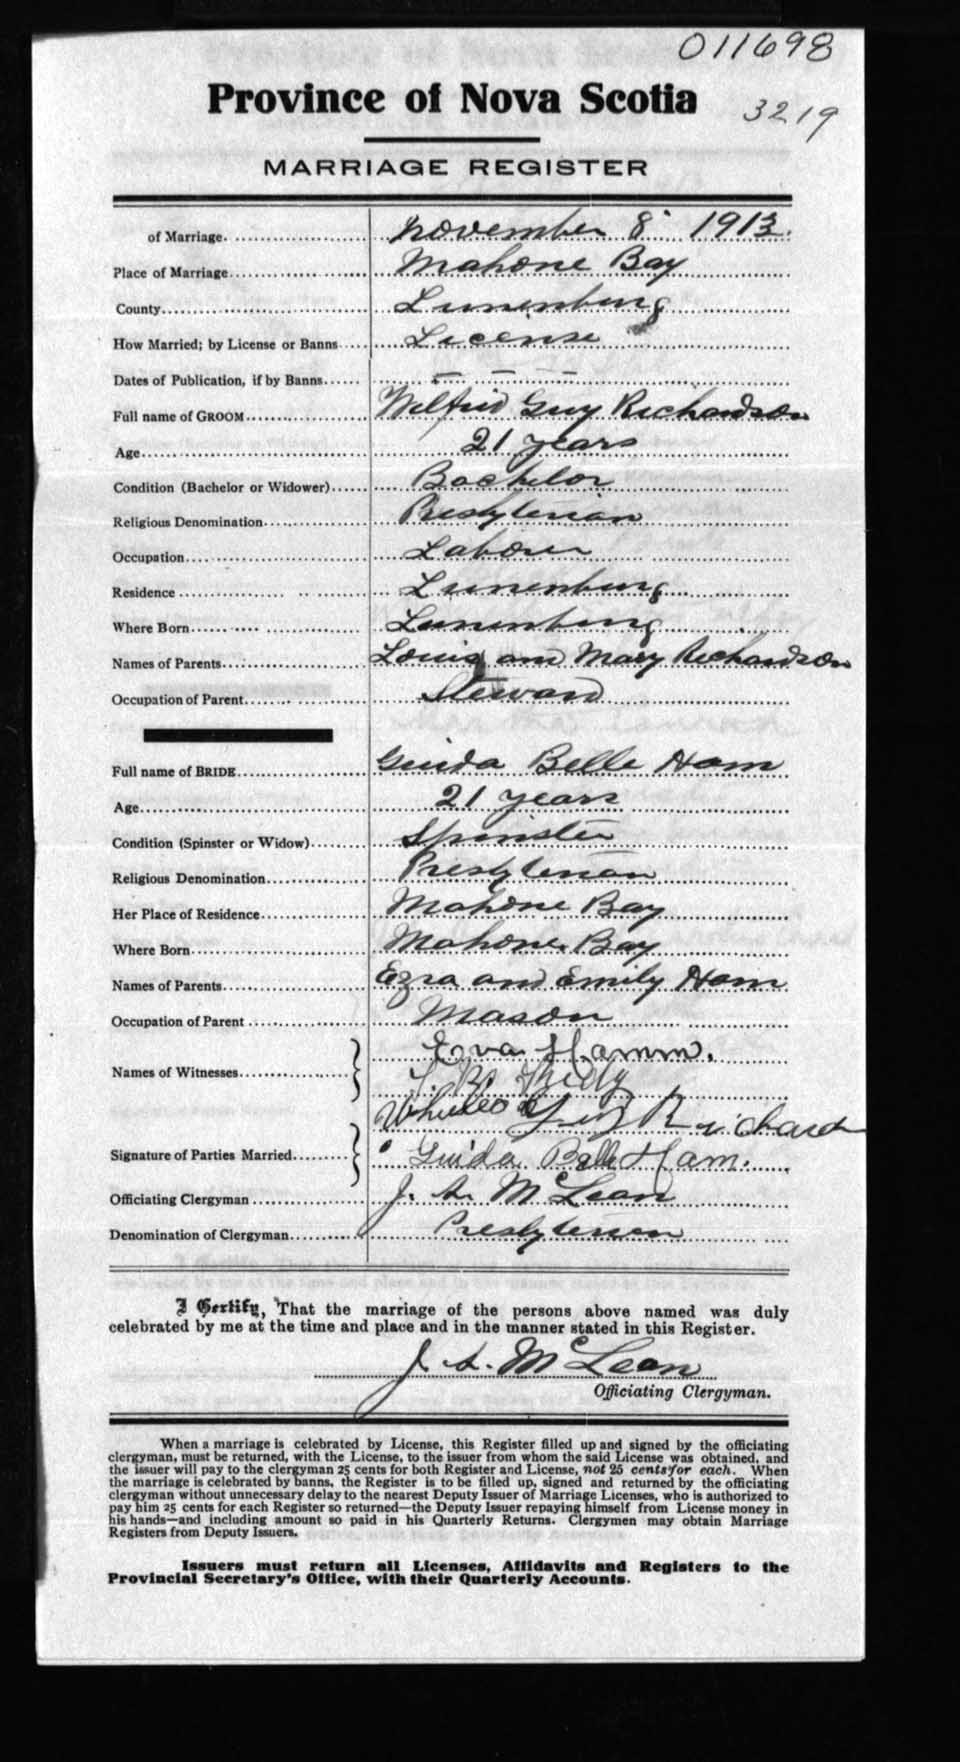 011698
Province of Nova Scotia 3219
MARRIAGE REGISTER
of Marriage November 8 1913.
Place of Marriage Mahone Bay
County Lunenburg
How Married; by License or Banns License
Dates of Publication, if by Banns — — — —
Full name of GROOM Wilfrid Guy Richardson
Age 21 years
Condition (Bachelor or Widower) Bachelor
Religious Denomination Presbyterian
Occupation Laborer
Residence Lunenburg
Where Born Lunenburg
Names of Parents Louis and Mary Richardson
Occupation of Parent Steward
Full name of BRIDE Guida Belle Ham
Age 21 years
Condition (Spinster or Widow) Spinster
Religious Denomination Presbyterian
Her Place of Residence Mahone Bay
Where Born Mahone Bay
Names of Parents Ezra and Emily Ham
Occupation of Parent Mason
Names of Witnesses Eva Hamm.
Guy Richard
Signature of Parties Married Guida Belle Ham.
Officiating Clergyman J. A. McLean
Denomination of Clergyman Presbyterian
I Certify, That the marriage of the persons above named was duly
celebrated by me at the time and place and in the manner stated in this Register.
J. A. McLean
Officiating Clergyman.
When a marriage is celebrated by License, this Register filled up and signed by the officiating
clergyman, must be returned, with the License, to the issuer from whom the said License was obtained, and
the issuer will pay to the clergyman 25 cents for both Register and License, not 25 cents for each. When
the marriage is celebrated by banns, the Register is to be filled up, signed and returned by the officiating
clergyman without unnecessary delay to the nearest Deputy Issuer of Marriage Licenses, who is authorized to
pay him 25 cents for each Register so returned—the Deputy Issuer repaying himself from License money in
his hands—and including amount so paid in his Quarterly Returns. Clergymen may obtain Marriage
Registers from Deputy Issuers.
Issuers must return all Licenses, Affidavits and Registers to the
Provincial Secretary's Office, with their Quarterly Accounts.